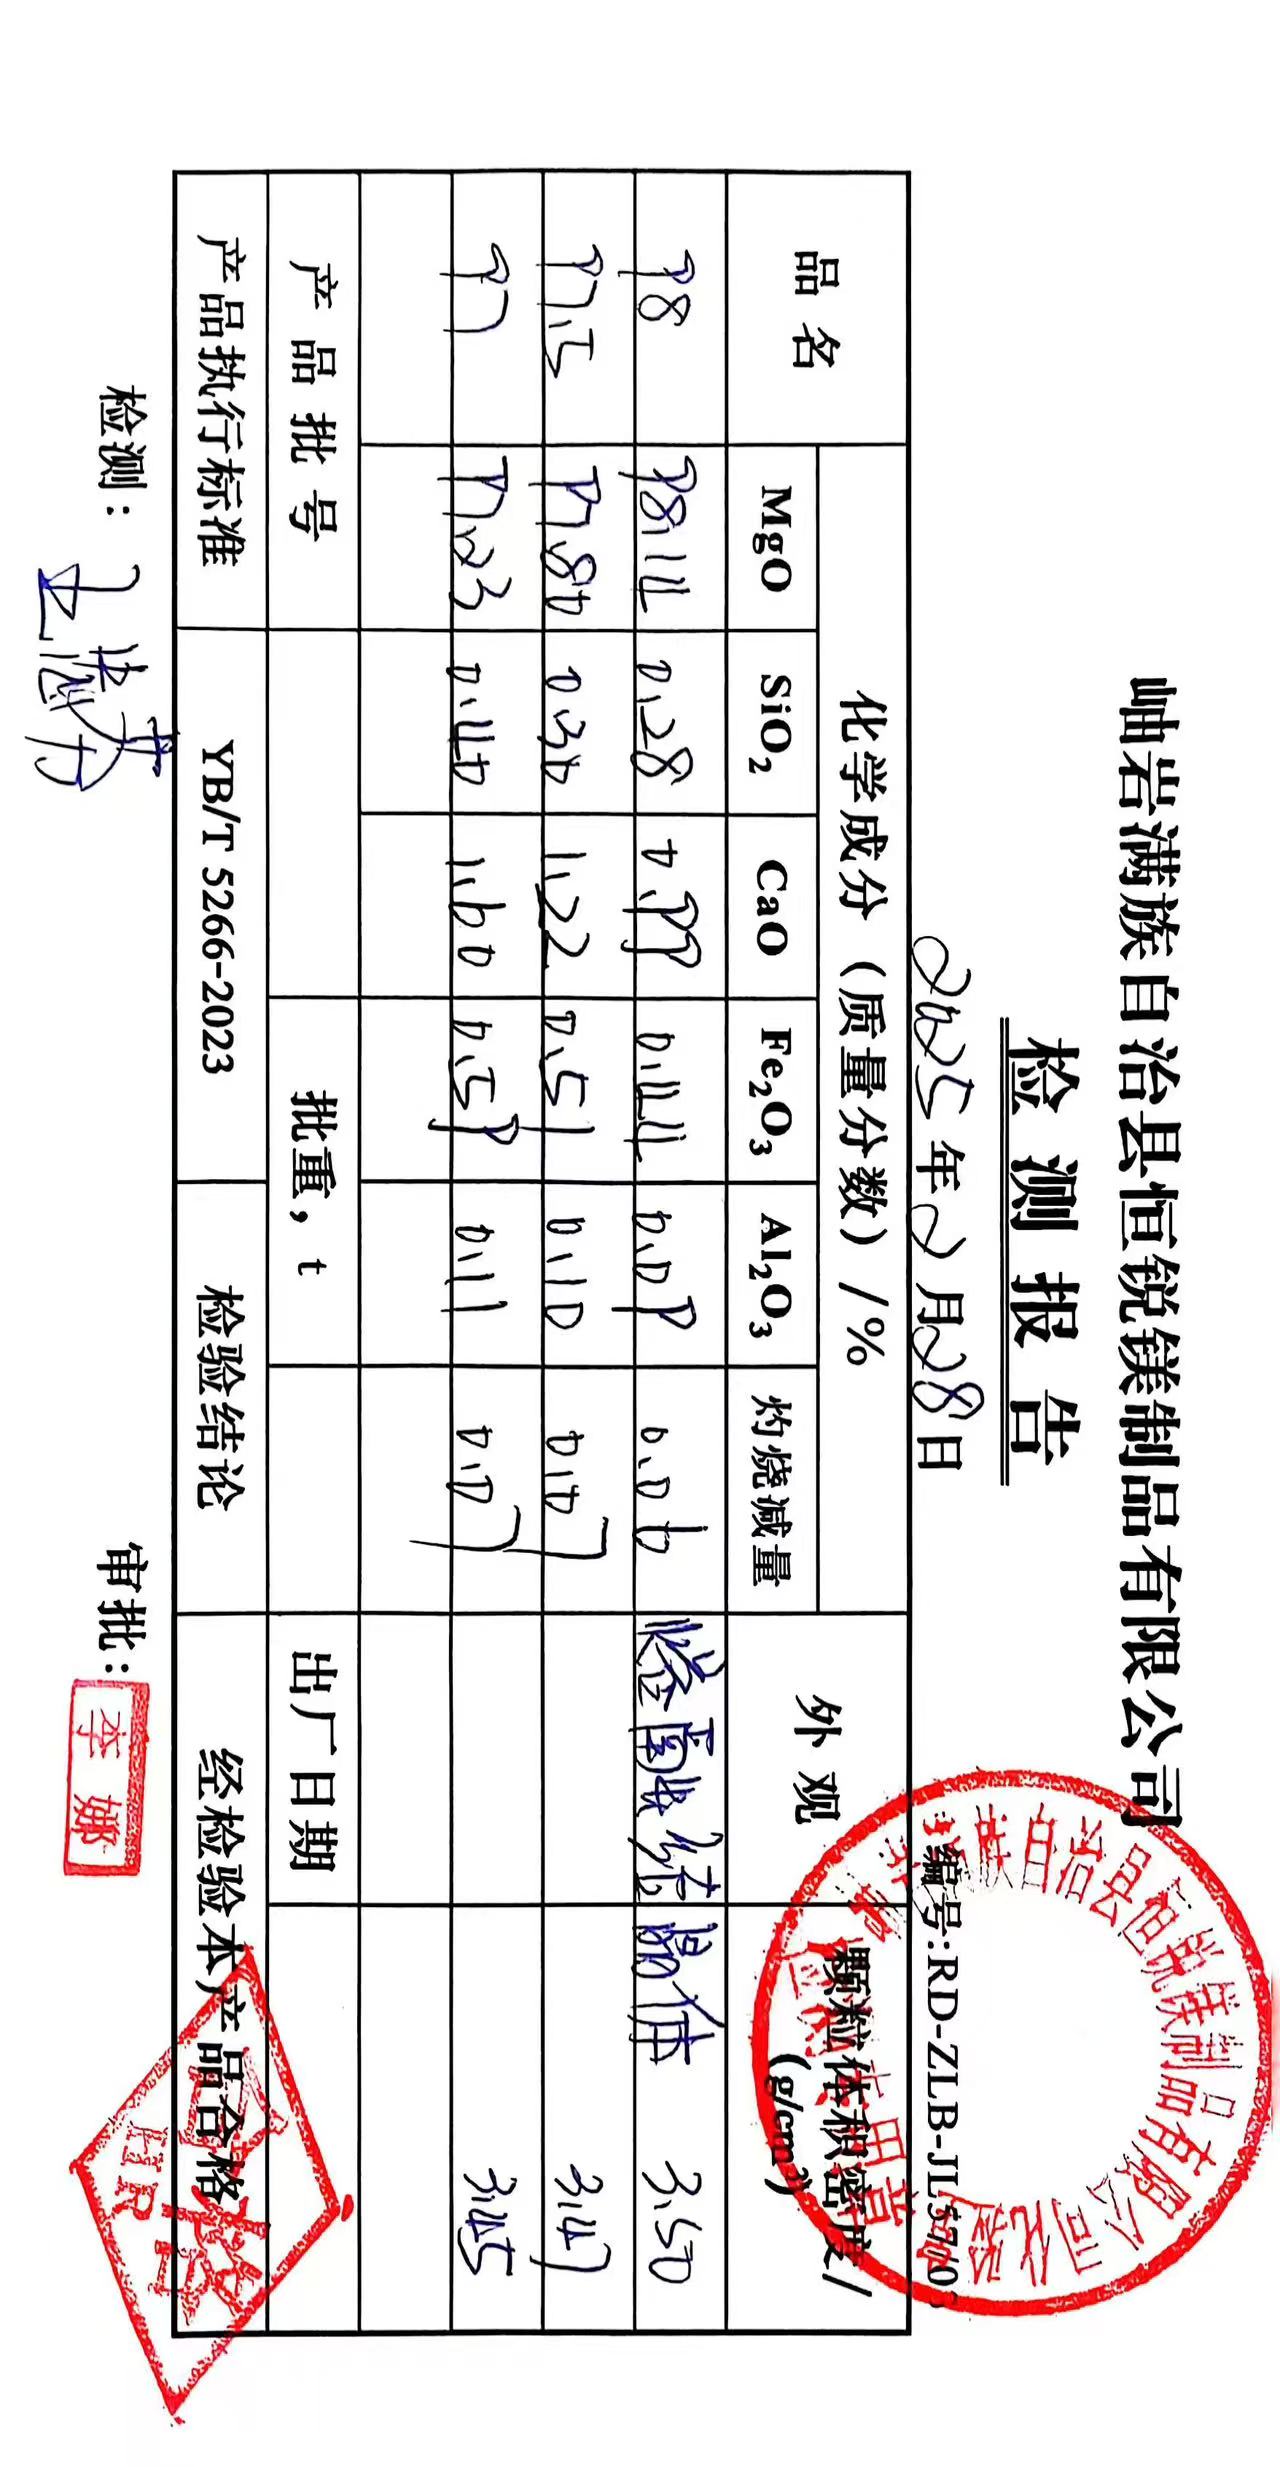 岫岩满族自治县恒锐镁制品有限公司
检测报告
2025年2月28日 编号:RD-ZLB-JL57/0
品名 化学成分（质量分数）/% 外观 颗粒体积密度/(g/cm³)
MgO SiO₂ CaO Fe₂O₃ Al₂O₃ 灼烧减量
98 98.14 0.28 0.99 0.44 0.09 0.06 3.50
97.5 97.80 0.30 1.22 0.51 0.10 0.07 3.47
97 97.23 0.40 1.60 0.59 0.11 0.07 3.45
产品批号 批重，t 出厂日期
产品执行标准 YB/T 5266-2023 检验结论 经检验本产品合格
检测： 审批：李娜
岫岩满族自治县恒锐镁制品有限公司
HR